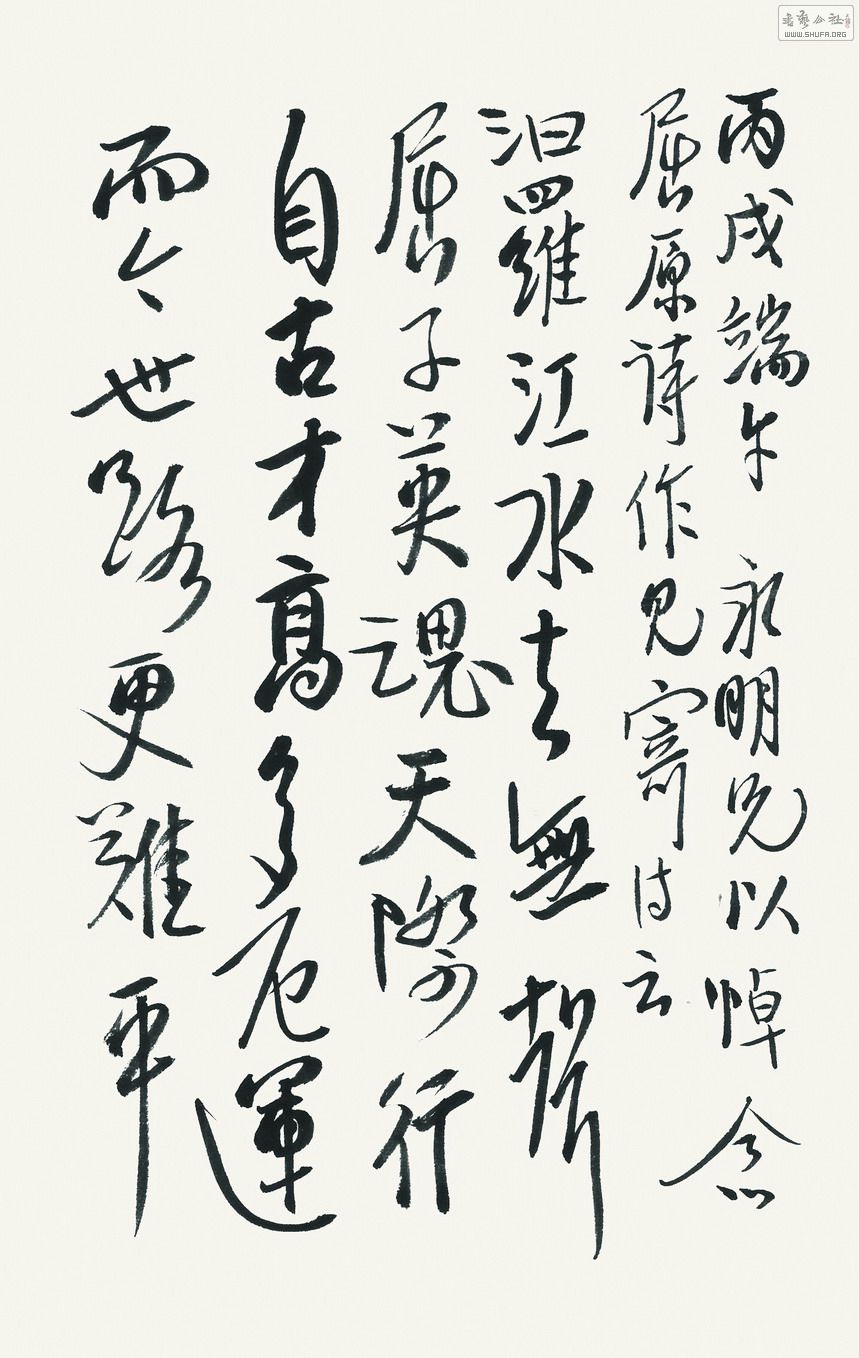 丙戌端午 永明兄以悼念
屈原诗作见寄诗云
汨羅江水去無聲
屈子英魂天際行
自古才高多厄運
而今世路更難平
WWW.SHUFA.ORG